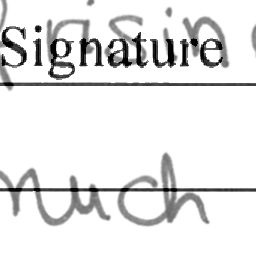 risin
Signature
much